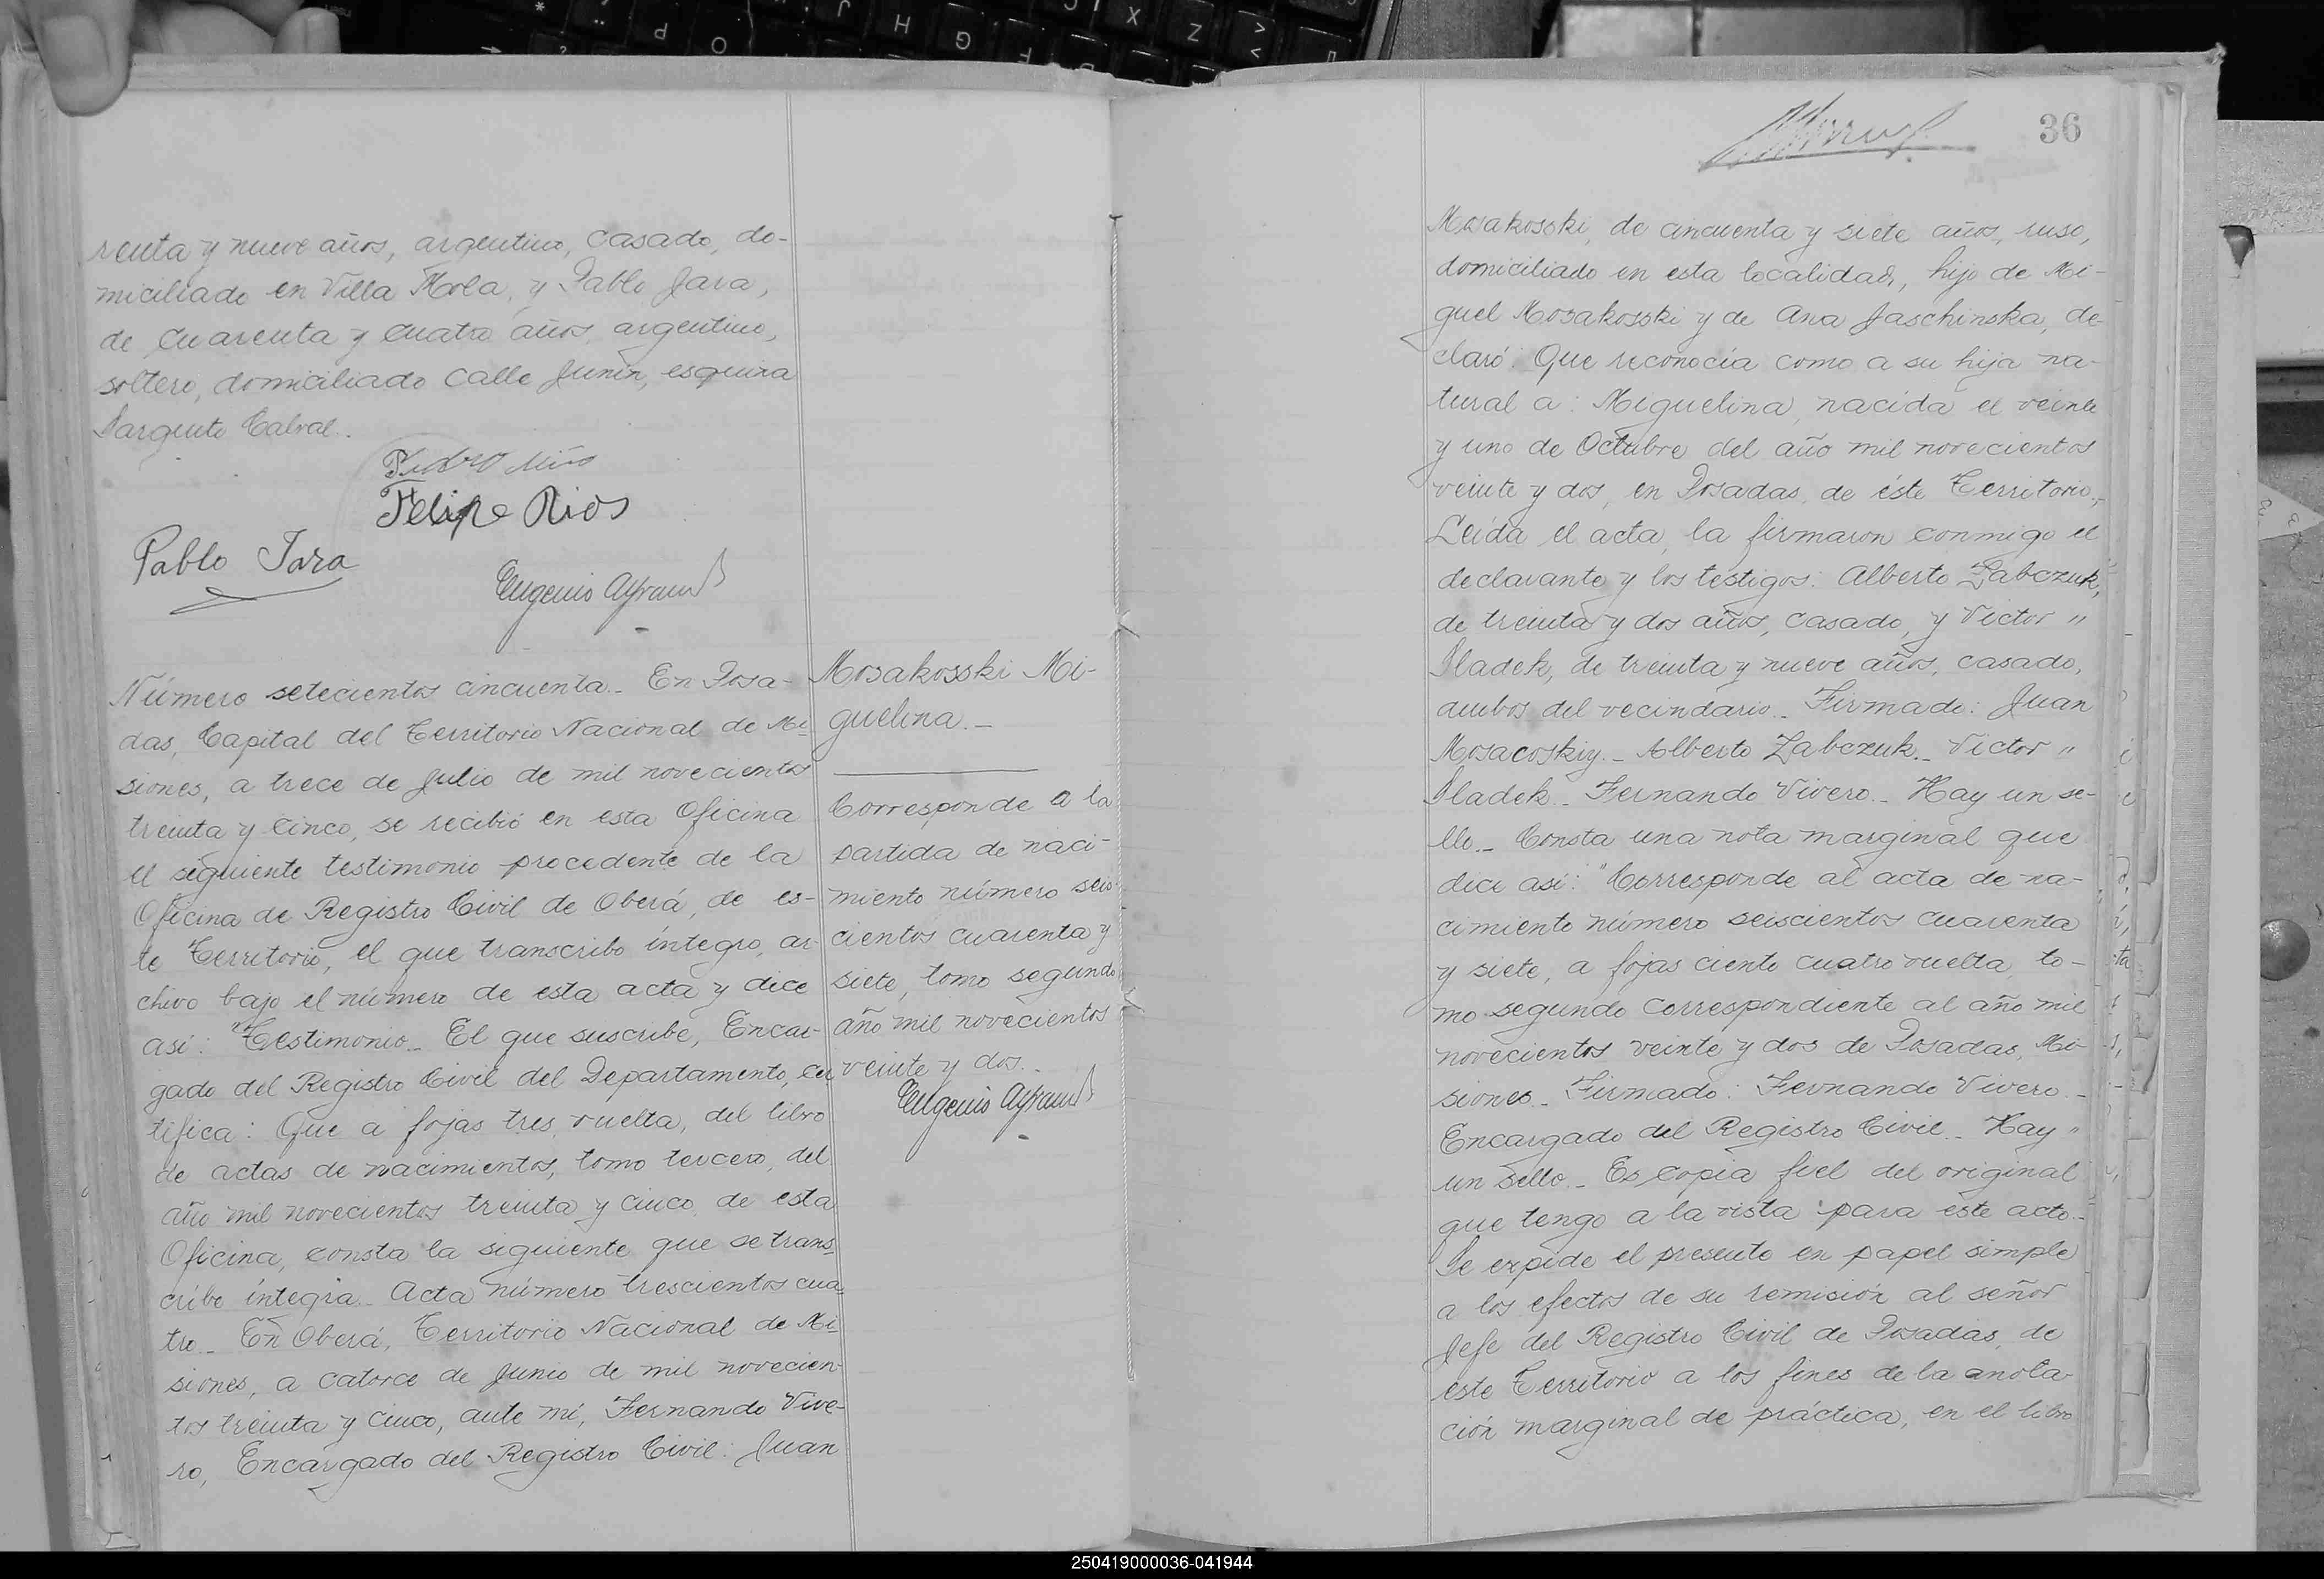 renta y nueve años, argentino, casado, do-
miciliado en Villa Mola, y Pablo Jara,
de cuarenta y cuatro años, argentino,
soltero, domiciliado calle Junín, esquina
Sargento Cabral.
Felipe Rios
Pablo Jara
Eugenio
Número setecientos cincuenta._ En Posa-
das, Capital del Territorio Nacional de Mi-
siones, a trece de Julio de mil novecientos
treinta y cinco, se recibió en esta Oficina
el siguiente testimonio procedente de la
Oficina de Registro Civil de Oberá, de es-
te Territorio, el que transcribo íntegro, ar-
chivo bajo el número de esta acta y dice
así: "Testimonio._ El que suscribe, Encar-
gado del Registro Civil del Departamento, cer
tifica: Que a fojas tres, vuelta, del libro
de actas de nacimientos, tomo tercero, del
año mil novecientos treinta y cinco, de esta
Oficina, consta la siguiente que se trans-
cribe íntegra._ Acta número trescientos cua-
tro._ En Oberá, Territorio Nacional de Mi-
siones, a catorce de Junio de mil novecien-
tos treinta y cinco, ante mí, Fernando Vive-
ro, Encargado del Registro Civil: Juan
Mosakosski Mi-
guelina._
Corresponde a la
partida de naci-
miento número seis-
cientos cuarenta y
siete, tomo segundo
año mil novecientos
veinte y dos._
Eugenio
36
Mosakosski, de cincuenta y siete años, ruso,
domiciliado en esta localidad, hijo de Mi-
guel Mosakosski y de Ana Jaschinska, de-
claró: Que reconocía como a su hija na-
tural a: Miguelina, nacida el veinte
y uno de Octubre del año mil novecientos
veinte y dos, en Posadas, de éste Territorio._
Leída el acta, la firmaron conmigo el
declarante y los testigos: Alberto Zabczuk,
de treinta y dos años, casado, y Victor "
Sladek, de treinta y nueve años, casado,
ambos del vecindario._ Firmado: Juan
Mosacoskiy._ Alberto Zabczuk._ Victor "
Sladek._ Fernando Vivero._ Hay un se-
llo._ Consta una nota marginal que
dice así: "Corresponde al acta de na-
cimiento número seiscientos cuarenta
y siete, a fojas ciento cuatro vuelta, to-
mo segundo correspondiente al año mil
novecientos veinte y dos de Posadas, Mi-
siones._ Firmado: Fernando Vivero._
Encargado del Registro Civil._ Hay "
un sello._ Es copia fiel del original
que tengo a la vista para este acto._
Se expide el presente en papel simple
a los efectos de su remisión al señor
Jefe del Registro Civil de Posadas, de
este Territorio a los fines de la anota-
ción marginal de práctica, en el libro
250419000036-041944